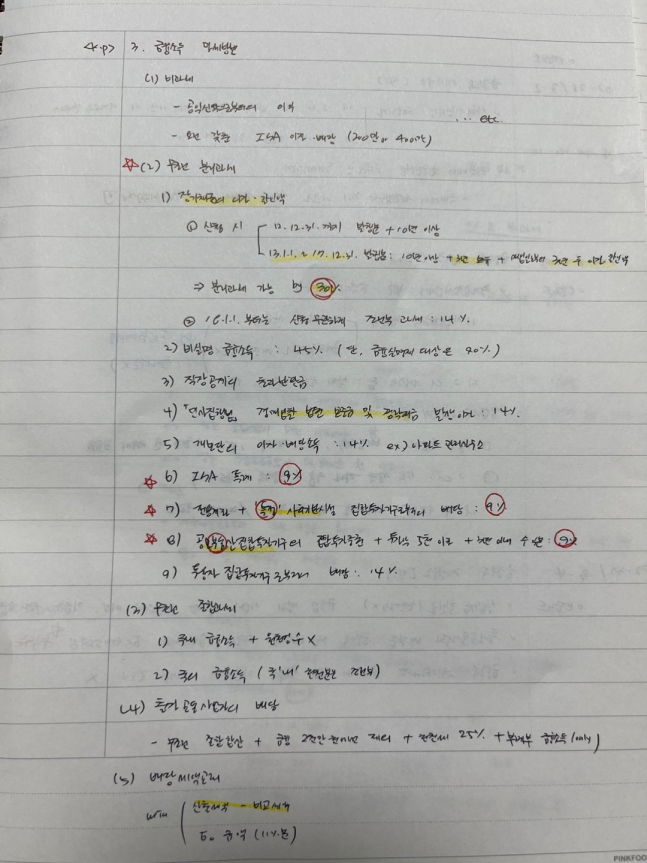 <p> 3. 금융소득 과세방법
(1) 비과세
- 공익신탁으로부터의 이자 ... etc
- 요건 갖춘 ISA 이자·배당 (200만 or 400만)
☆(2) 무조건 분리과세
1) 장기채권의 이자·할인액
① 신청 시 12.12.31. 까지 발행분 + 10년 이상
13.1.1. ~ 17.12.31. 발행분 : 10년 이상 + 3년 보유 + 3년 후 이자·할인액
⇒ 분리과세 가능 by 30%
② 18.1.1. 부터는 신청 무관하게 조건부 과세 : 14%
2) 비실명 금융소득 : 45% (단, 금융실명제 대상은 90%)
3) 직장공제회 초과반환금
4) 「민사집행법」 경매입찰 보증금 및 경락대금 발생이자 : 14%
5) 개모단의 이자·배당소득 : 14% ex) 아파트 관리사무소
☆ 6) ISA 특례 : 9%
☆ 7) 전용계좌 + '특정' 사회기반시설 집합투자기구로부터의 배당 : 9%
☆ 8) 공모부동산집합투자기구의 집합투자증권 + 투자 5천 이하 + 3년 이내 수입분 : 9%
9) 투융자 집합투자기구로부터의 배당 : 14%
(3) 무조건 종합과세
1) 국내 금융소득 + 원천징수 X
2) 국외 금융소득 (국'내' 원천분은 조건부)
(4) 출자공동사업자의 배당
- 무조건 종합합산 + 금융 2천만원 제외 + 원천세 25% + 부동산 금융소득 (only)
(5) 배당세액공제
with 산출세액 - 비교세액
G-up 금액 (11%분)
PINKFOO